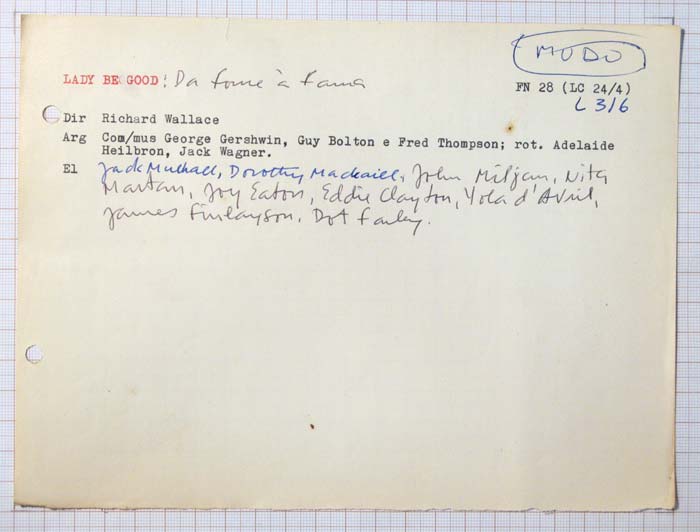 MUDO
LADY BE GOOD: Da fome à fama
FN 28 (LC 24/4)
L 3/6
Dir Richard Wallace
Arg Com/mus George Gershwin, Guy Bolton e Fred Thompson; rot. Adelaide
Heilbron, Jack Wagner.
El Jack Mulhall, Dorothy Mackaill, John Miljan, Nita
Martan, Joy Eaton, Eddie Clayton, Yola d'Avril,
James Finlayson, Dot Farley.